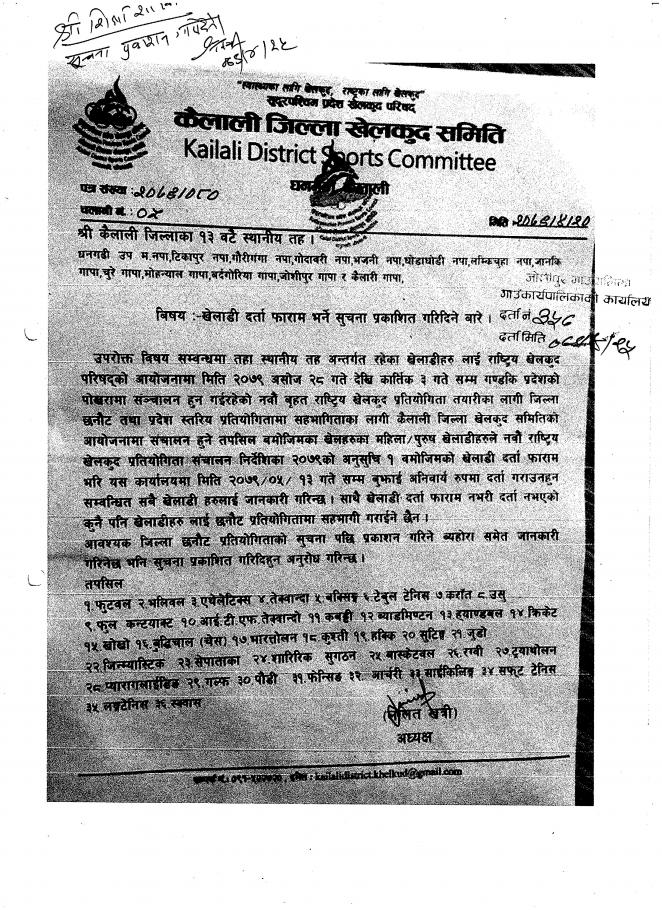 श्री शिक्षा शाखा
सूचना प्रकाशन गर्नुहोला
"स्वास्थ्यका लागि खेलकुद, राष्ट्रका लागि खेलकुद"
सुदूरपश्चिम प्रदेश खेलकुद परिषद
कैलाली जिल्ला खेलकुद समिति
Kailali District Sports Committee
धनगढी कैलाली
पत्र संख्या :२०७९।०८०
चलानी नं. : ०५
मिति :२०७९।४।२०
श्री कैलाली जिल्लाका १३ वटै स्थानीय तह ।
धनगढी उप म.नपा,टिकापुर नपा,गौरीगंगा नपा,गोदावरी नपा,भजनी नपा,घोडाघोडी नपा,लम्किचुहा नपा,जानकि
गापा,चुरे गापा,मोहन्याल गापा,बर्दगोरिया गापा,जोशीपुर गापा र कैलारी गापा,
जोशीपुर गाउँपालिका
गाउँकार्यपालिकाको कार्यालय
दर्ता नं
दर्ता मिति
विषय :-खेलाडी दर्ता फाराम भर्ने सुचना प्रकाशित गरिदिने बारे ।
उपरोक्त विषय सम्बन्धमा तहा स्थानीय तह अन्तर्गत रहेका खेलाडीहरु लाई राष्ट्रिय खेलकुद
परिषद्को आयोजनामा मिति २०७९ असोज २८ गते देखि कार्तिक ३ गते सम्म गण्डकि प्रदेशको
पोखरामा सञ्चालन हुन गईरहेको नवौं बृहत राष्ट्रिय खेलकुद प्रतियोगिता तयारीका लागी जिल्ला
छनौट तथा प्रदेश स्तरिय प्रतियोगितामा सहभागिताका लागी कैलाली जिल्ला खेलकुद समितिको
आयोजनामा संचालन हुने तपसिल बमोजिमका खेलहरुका महिला/पुरुष खेलाडीहरुले नवौं राष्ट्रिय
खेलकुद प्रतियोगिता संचालन निर्देशिका २०७९को अनुसुचि १ बमोजिमको खेलाडी दर्ता फाराम
भरि यस कार्यालयमा मिति २०७९/०५/ १३ गते सम्म बुझाई अनिवार्य रुपमा दर्ता गराउनहुन
सम्बन्धित सबै खेलाडी हरुलाई जानकारी गरिन्छ । साथै खेलाडी दर्ता फाराम नभरी दर्ता नभएको
कुनै पनि खेलाडीहरु लाई छनौट प्रतियोगितामा सहभागी गराईने छैन ।
आवश्यक जिल्ला छनौट प्रतियोगिताको सुचना पछि प्रकाशन गरिने ब्यहोरा समेत जानकारी
गरिनेछ भनि सुचना प्रकाशित गरिदिहुन अनुरोध गरिन्छ ।
तपसिल
१.फुटबल २.भलिबल ३.एथेलेटिक्स ४.तेक्वान्दा ५.बक्सिङ्ग ६.टेबुल टेनिस ७.कराँत ८.उसु
९.फुल कन्ट्याक्ट १०.आई.टी.एफ.तेक्वान्दो ११.कबड्डी १२.ब्याडमिण्टन १३.हयाण्डबल १४.क्रिकेट
१५.खोखो १६.बुद्धिचाल (चेस) १७.भारत्तोलन १८.कुश्ती १९.हक्कि २० सुटिङ्ग २१.जुडो
२२.जिम्न्यास्टिक २३.सेपाताका २४.शारिरिक सुगठन २५ बास्केटबल २६.रग्बी २७.ट्रयाथोलन
२८.प्यारागलाईडिङ २९.गल्फ ३०.पौडी ३१.फेन्सिङ ३२. आर्चरी ३३.साईकिलिङ्ग ३४ सफ्ट टेनिस
३५ लनटेनिस ३६.स्क्वास
(ललित खत्री)
अध्यक्ष
kailalidistrict.khelkud@gmail.com